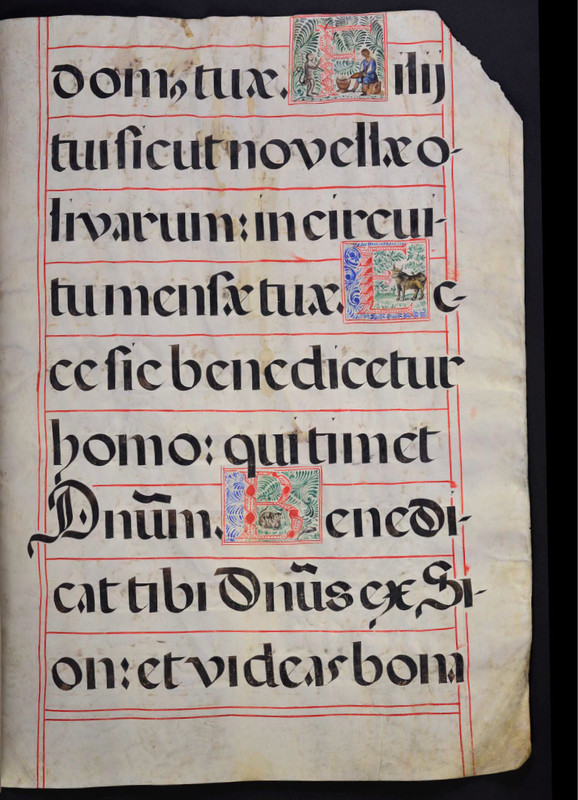 domꝰ tuæ. Filij
tui ſicut novellæ o-
livarum: in circui-
tu menſæ tuæ. Ec-
ce ſic benedicetur
homo: qui timet
Dnūm. Benedi-
cat tibi Dnūs ex Si-
on: et videas bona